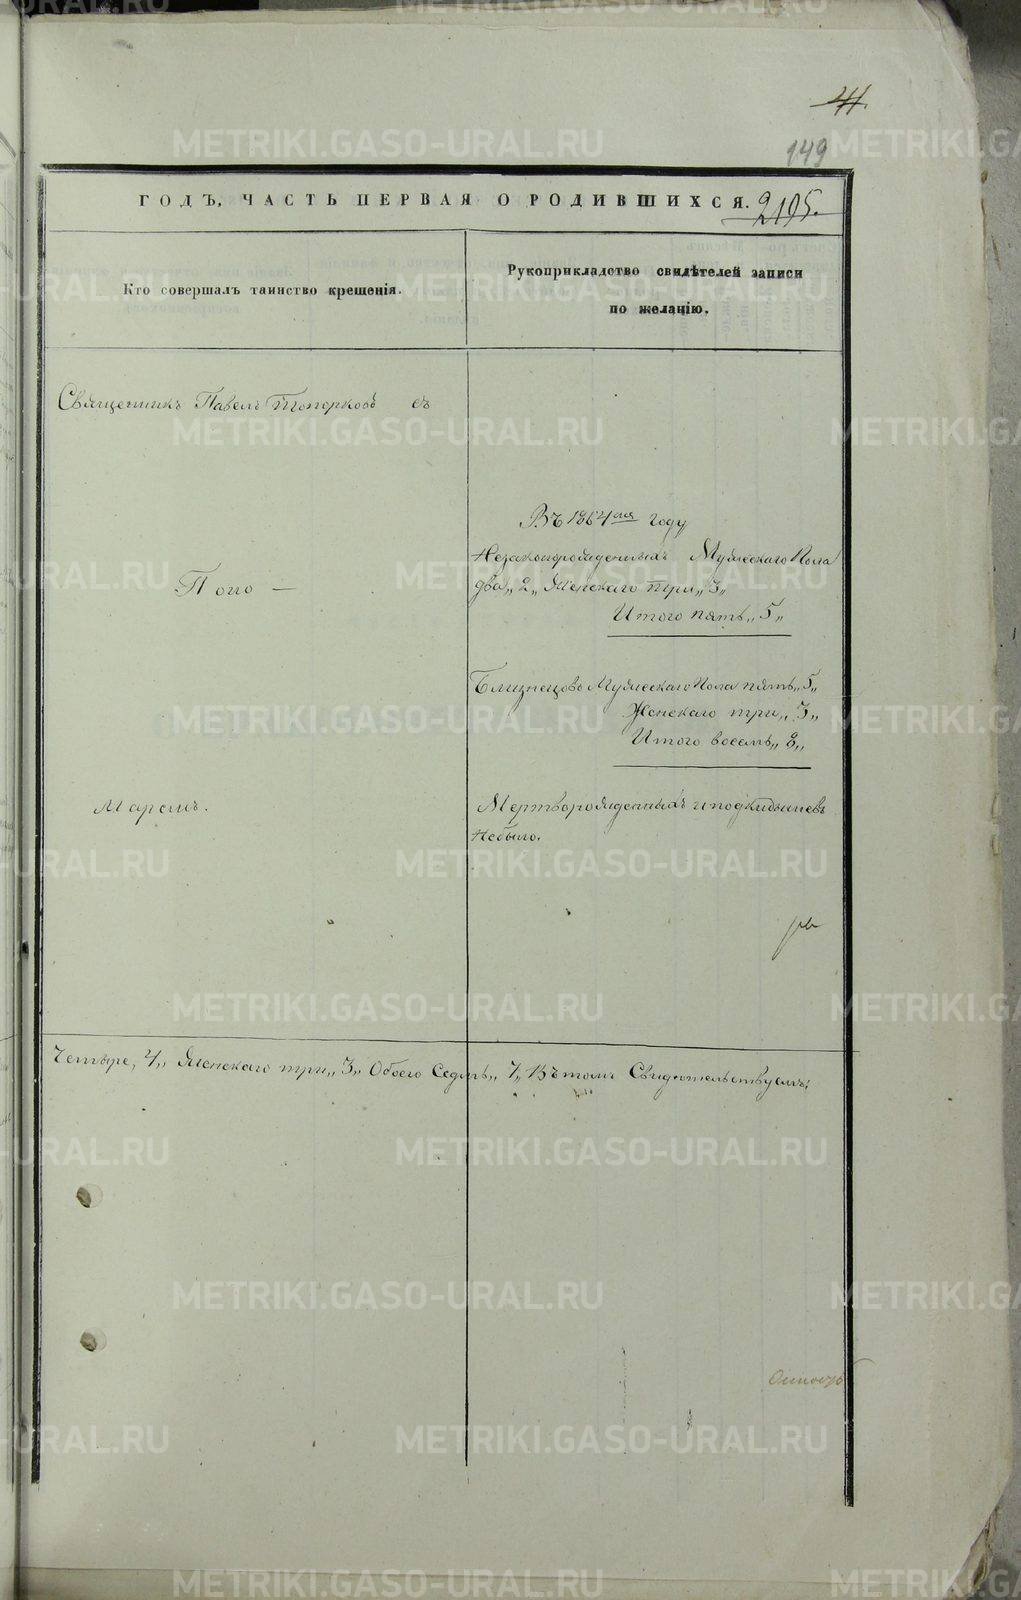 41.
149
ГОДЪ, ЧАСТЬ ПЕРВАЯ О РОДИВШИХСЯ.
2195.
Кто совершалъ таинство крещенія.
Рукоприкладство свидѣтелей записи
по желанію.
Священникъ Павелъ Топорковъ съ
Въ 1864 году
Незаконорожденныхъ Мужескаго Пола
два „2„ Женскаго три „3„
Итого пять „5„
Попо —
Близнецовъ Мужескаго Пола пять „5„
Женскаго три „3„
Итого восемь „8„
Марсинъ.
Мертворожденныхъ и подкидышевъ
Небыло.
Четыре, 4„ Женскаго три „3„ Обоего Седмь „7„ Въ томъ Свидѣтельствуемъ:
METRIKI.GASO-URAL.RU